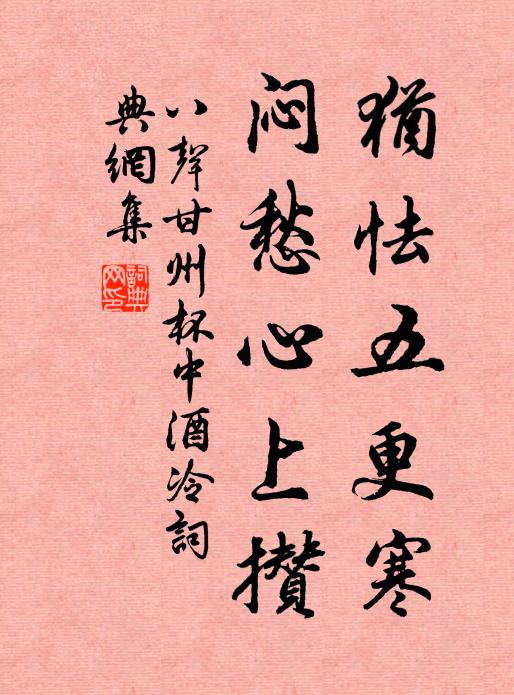 猶怯五更寒
闷愁心上攢
八聲甘州杯中酒冷詞
典網集
詞典
网印